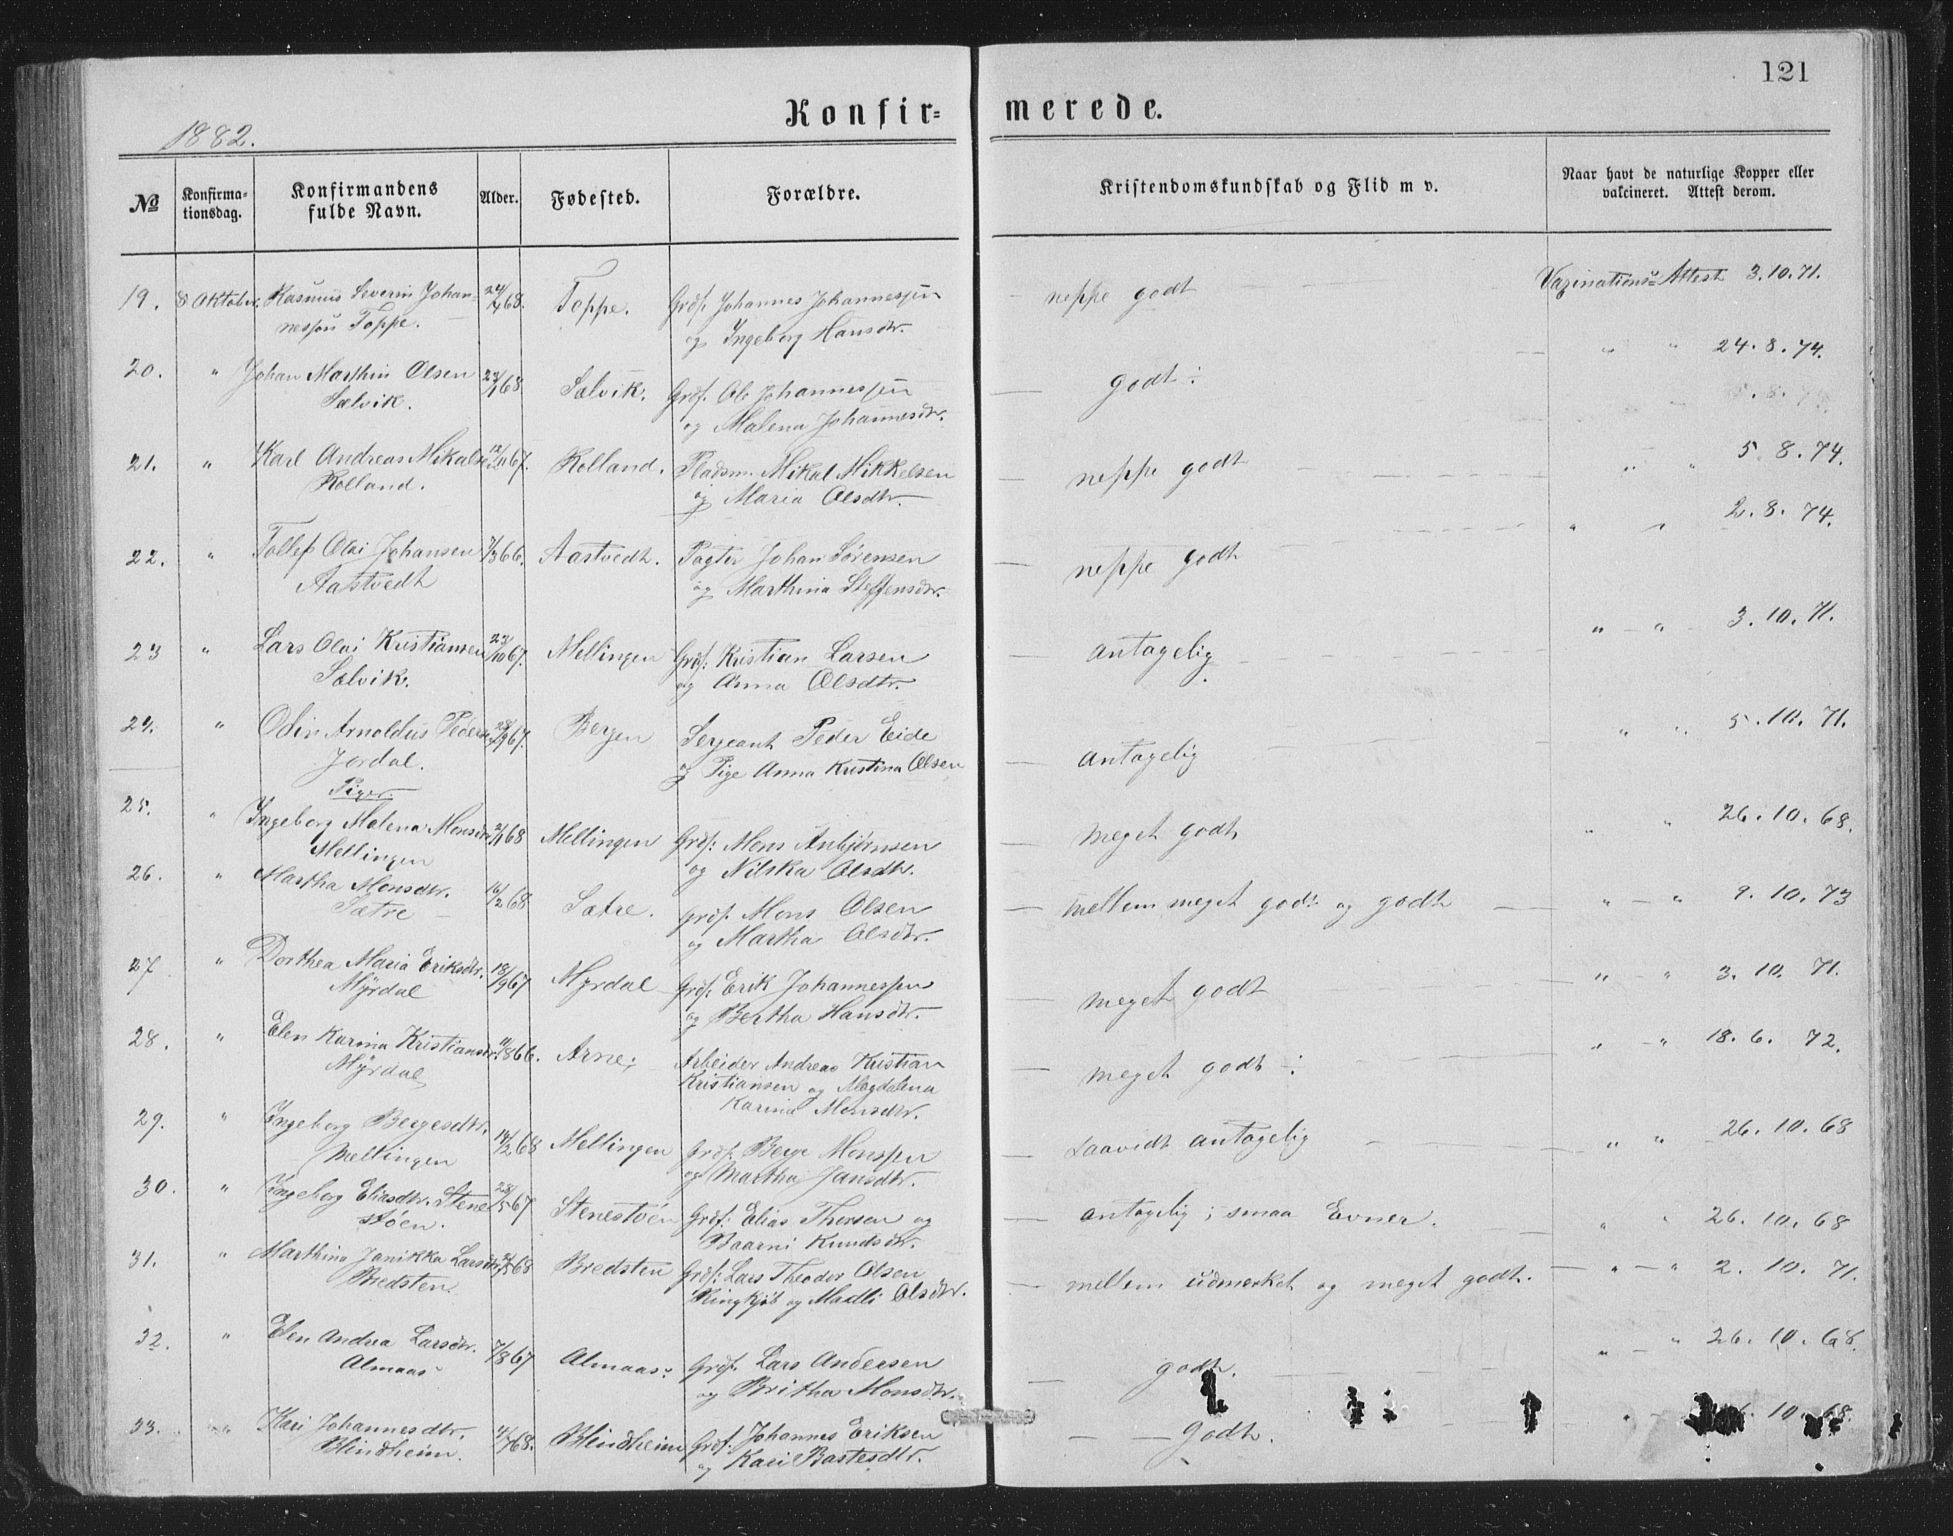 121
Konfir= merede.
1882.
№ Konfirma-tionsdag. Konfirmandens fulde Navn. Alder. Fødested. Forældre. Kristendomskundskab og Flid m v. Naar havt de naturlige Kopper eller vakcineret. Attest derom.
19. 8 Oktober. Rasmus Severin Johan- 68. Toppe. Grdf. Johannes Johannessen neppe godt Vaxinations=Attest 3.10.71.
nessen Toppe. og Ingeborg Hansdtr.
20. " Johan Marthin Olsen 68 Sælvik. Grdf. Ole Johannessen godt ÷ " " 24.8.74.
Sælvik. og Malena Johannesdtr.
21. " Karl Andreas Mikalse 12/11 67. Rolland. Pladsm. Mikal Mikkelsen neppe godt " " 5.8.74.
Rolland. og Maria Olsdtr.
22. " Tollef Olai Johansen 1/3 66. Aastvedt. Pagter Johan Sørensen neppe godt " " 2.8.74.
Aastvedt og Marthina Steffensdtr.
23 " Lars Olai Kristiansen 23/10 67. Mellingen Grdf: Kristian Larsen antagelig " - " 3.10.71.
Sælvik. og Anna Olsdtr.
24. " Odin Arnoldus Peders 28/9 67. Bergen Sergeant Peder Eide antagelig " " 5.10.71.
Jordal. og Pige Anna Kristina Olsen
Piger.
25. " Ingeborg Malena Monsdtr 68 Mellingen Grdf: Mons Anbjørnsen meget godt " " 26.10.68.
Mellingen og Nilska Olsdtr.
26. " Martha Monsdtr. 16/2 68 Sætre. Grdf. Mons Olsen mellem meget godt og godt " - " 9.10.73
Sætre og Martha Olsdtr.
27 " Dorthea Maria Eriksdtr. 18/9 67 Myrdal Grdf: Erik Johannessen meget godt " - " 3.10.71.
Myrdal og Bertha Hansdtr.
28. " Elen Karina Kristiansdtr. 66. Arne; Arbeider Andreas Kristian meget godt ÷ " - " 18.6.72.
Myrdal Kristiansen og Magdalena
Karina Monsdtr.
29. " Ingeborg Bergesdtr. 14/2 68 Mellingen Grdf. Berge Monssen saavidt antagelig " " 26.10.68
Mellingen og Martha Jansdtr.
30. " Ingeborg Eliasdtr. Stene 23/5 67 Stenestøen Grdf: Elias Thorsen og antagelig; smaa Evner. " " 26.10.68
støen. Baarni Knudsdtr.
31. " Marthina Janikka Larsdtr 68 Bredsten Grdf: Lars Theodor Olsen mellem udmerket og meget godt. " - " 2.10.71.
Bredsten. Ringkjøb og Madli Olsdtr.
32. " Elen Andrea Larsdtr. 7/8 67 Almaas: Grdf. Lars Andersen godt. " " 26.10.68.
Almaas og Britha Monsdtr.
33. " Kari Johannesdtr. 68. Blindheim Grdf. Johannes Eriksen Godt. " 10.68.
Blindheim. og Kari Bastesdtr.